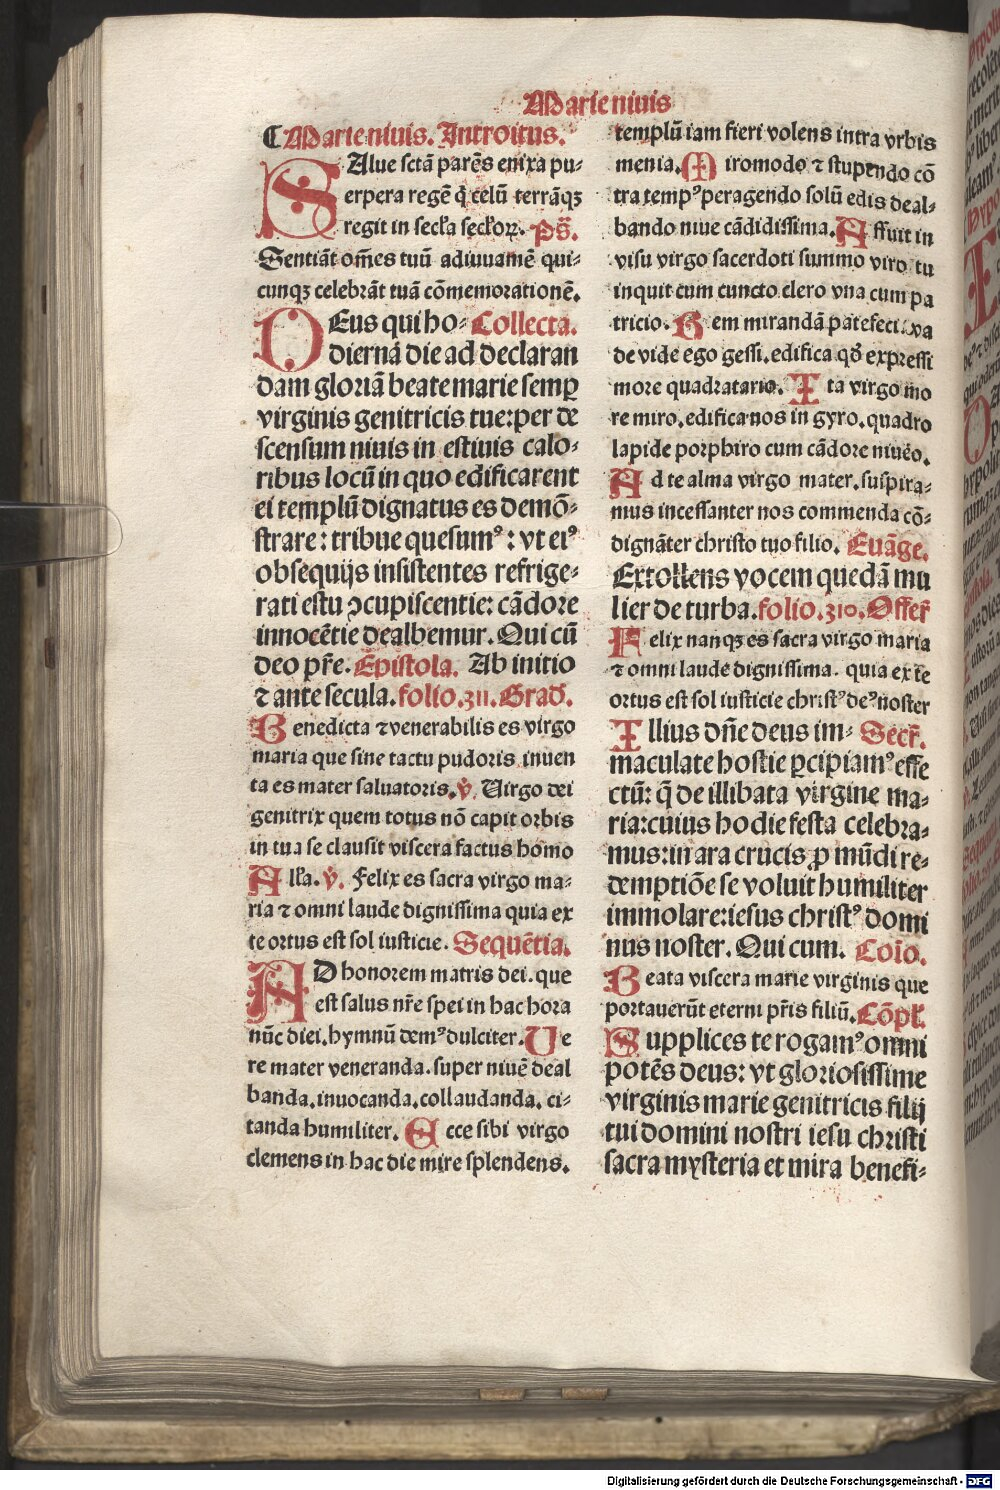 Marie niuis
¶ Marie niuis. Introitus.
SAlue sctā parēs enixa pu-
erpera regē q̄ celū terrāqꝫ
regit in secl'a secl'oꝝ. Ps̄.
Sentiāt om̄es tuū adiuuamē qui-
cunqꝫ celebrāt tuā cōmemorationē.
DEus qui ho- Collecta.
diernā die ad declaran
dam gloriā beate marie semꝑ
virginis genitricis tue: per de
scensum niuis in estiuis calo-
ribus locū in quo edificarent
ei templū dignatus es demō-
strare: tribue quesumꝰ: vt eiꝰ
obsequijs insistentes refrige-
rati estu ꝯcupiscentie: cādore
innocētie dealbemur. Qui cū
deo pr̄e. Epistola. Ab initio
⁊ ante secula. folio. 311. Grad.
Benedicta ⁊ venerabilis es virgo
maria que sine tactu pudoris inuen
ta es mater saluatoris. v̄. Uirgo dei
genitrix quem totus nō capit orbis
in tua se clausit viscera factus homo
All'a. v̄. Felix es sacra virgo ma-
ria ⁊ omni laude dignissima quia ex
te ortus est sol iusticie. Sequētia.
AD honorem matris dei. que
est salus nr̄e spei in hac hora
nūc diei. hymnū demꝰ dulciter. Ue
re mater veneranda. super niuē deal
banda. inuocanda. collaudanda. ci-
tanda humiliter. Ecce sibi virgo
clemens in hac die mire splendens.
templū iam fieri volens intra vrbis
menia. Miromodo ⁊ stupendo cō
tra tempꝰ peragendo solū edis deal-
bando niue cādidissima. Affuit in
visu virgo sacerdoti summo viro tu
inquit cum cuncto clero vna cum pa
tricio. Gem mirandā patefeci. va
de vide ego gessi. edifica qd̄ expressi
more quadratario. Ita virgo mo
re miro. edifica nos in gyro. quadro
lapide porphiro cum cādore niueo.
Ad te alma virgo mater. suspira-
mus incessanter nos commenda cō-
dignāter christo tuo filio. Euāge.
Extollens vocem quedā mu
lier de turba. folio. 310. Offer̄
Felix nanqꝫ es sacra virgo maria
⁊ omni laude dignissima. quia ex te
ortus est sol iusticie christꝰ deꝰ noster
Illius dn̄e deus im- Secr̄.
maculate hostie ꝑcipiamꝰ effe
ctū: q̄ de illibata virgine ma-
ria: cuius hodie festa celebra-
mus: in ara crucis ꝓ mūdi re-
demptiōe se voluit humiliter
immolare: iesus christꝰ domi
nus noster. Qui cum. Coīo.
Beata viscera marie virginis que
portauerūt eterni pr̄is filiū. Cōpl'.
Supplices te rogamꝰ omni
potēs deus: vt gloriosissime
virginis marie genitricis filij
tui domini nostri iesu christi
sacra mysteria et mira benefi-
Digitalisierung gefördert durch die Deutsche Forschungsgemeinschaft - DFG